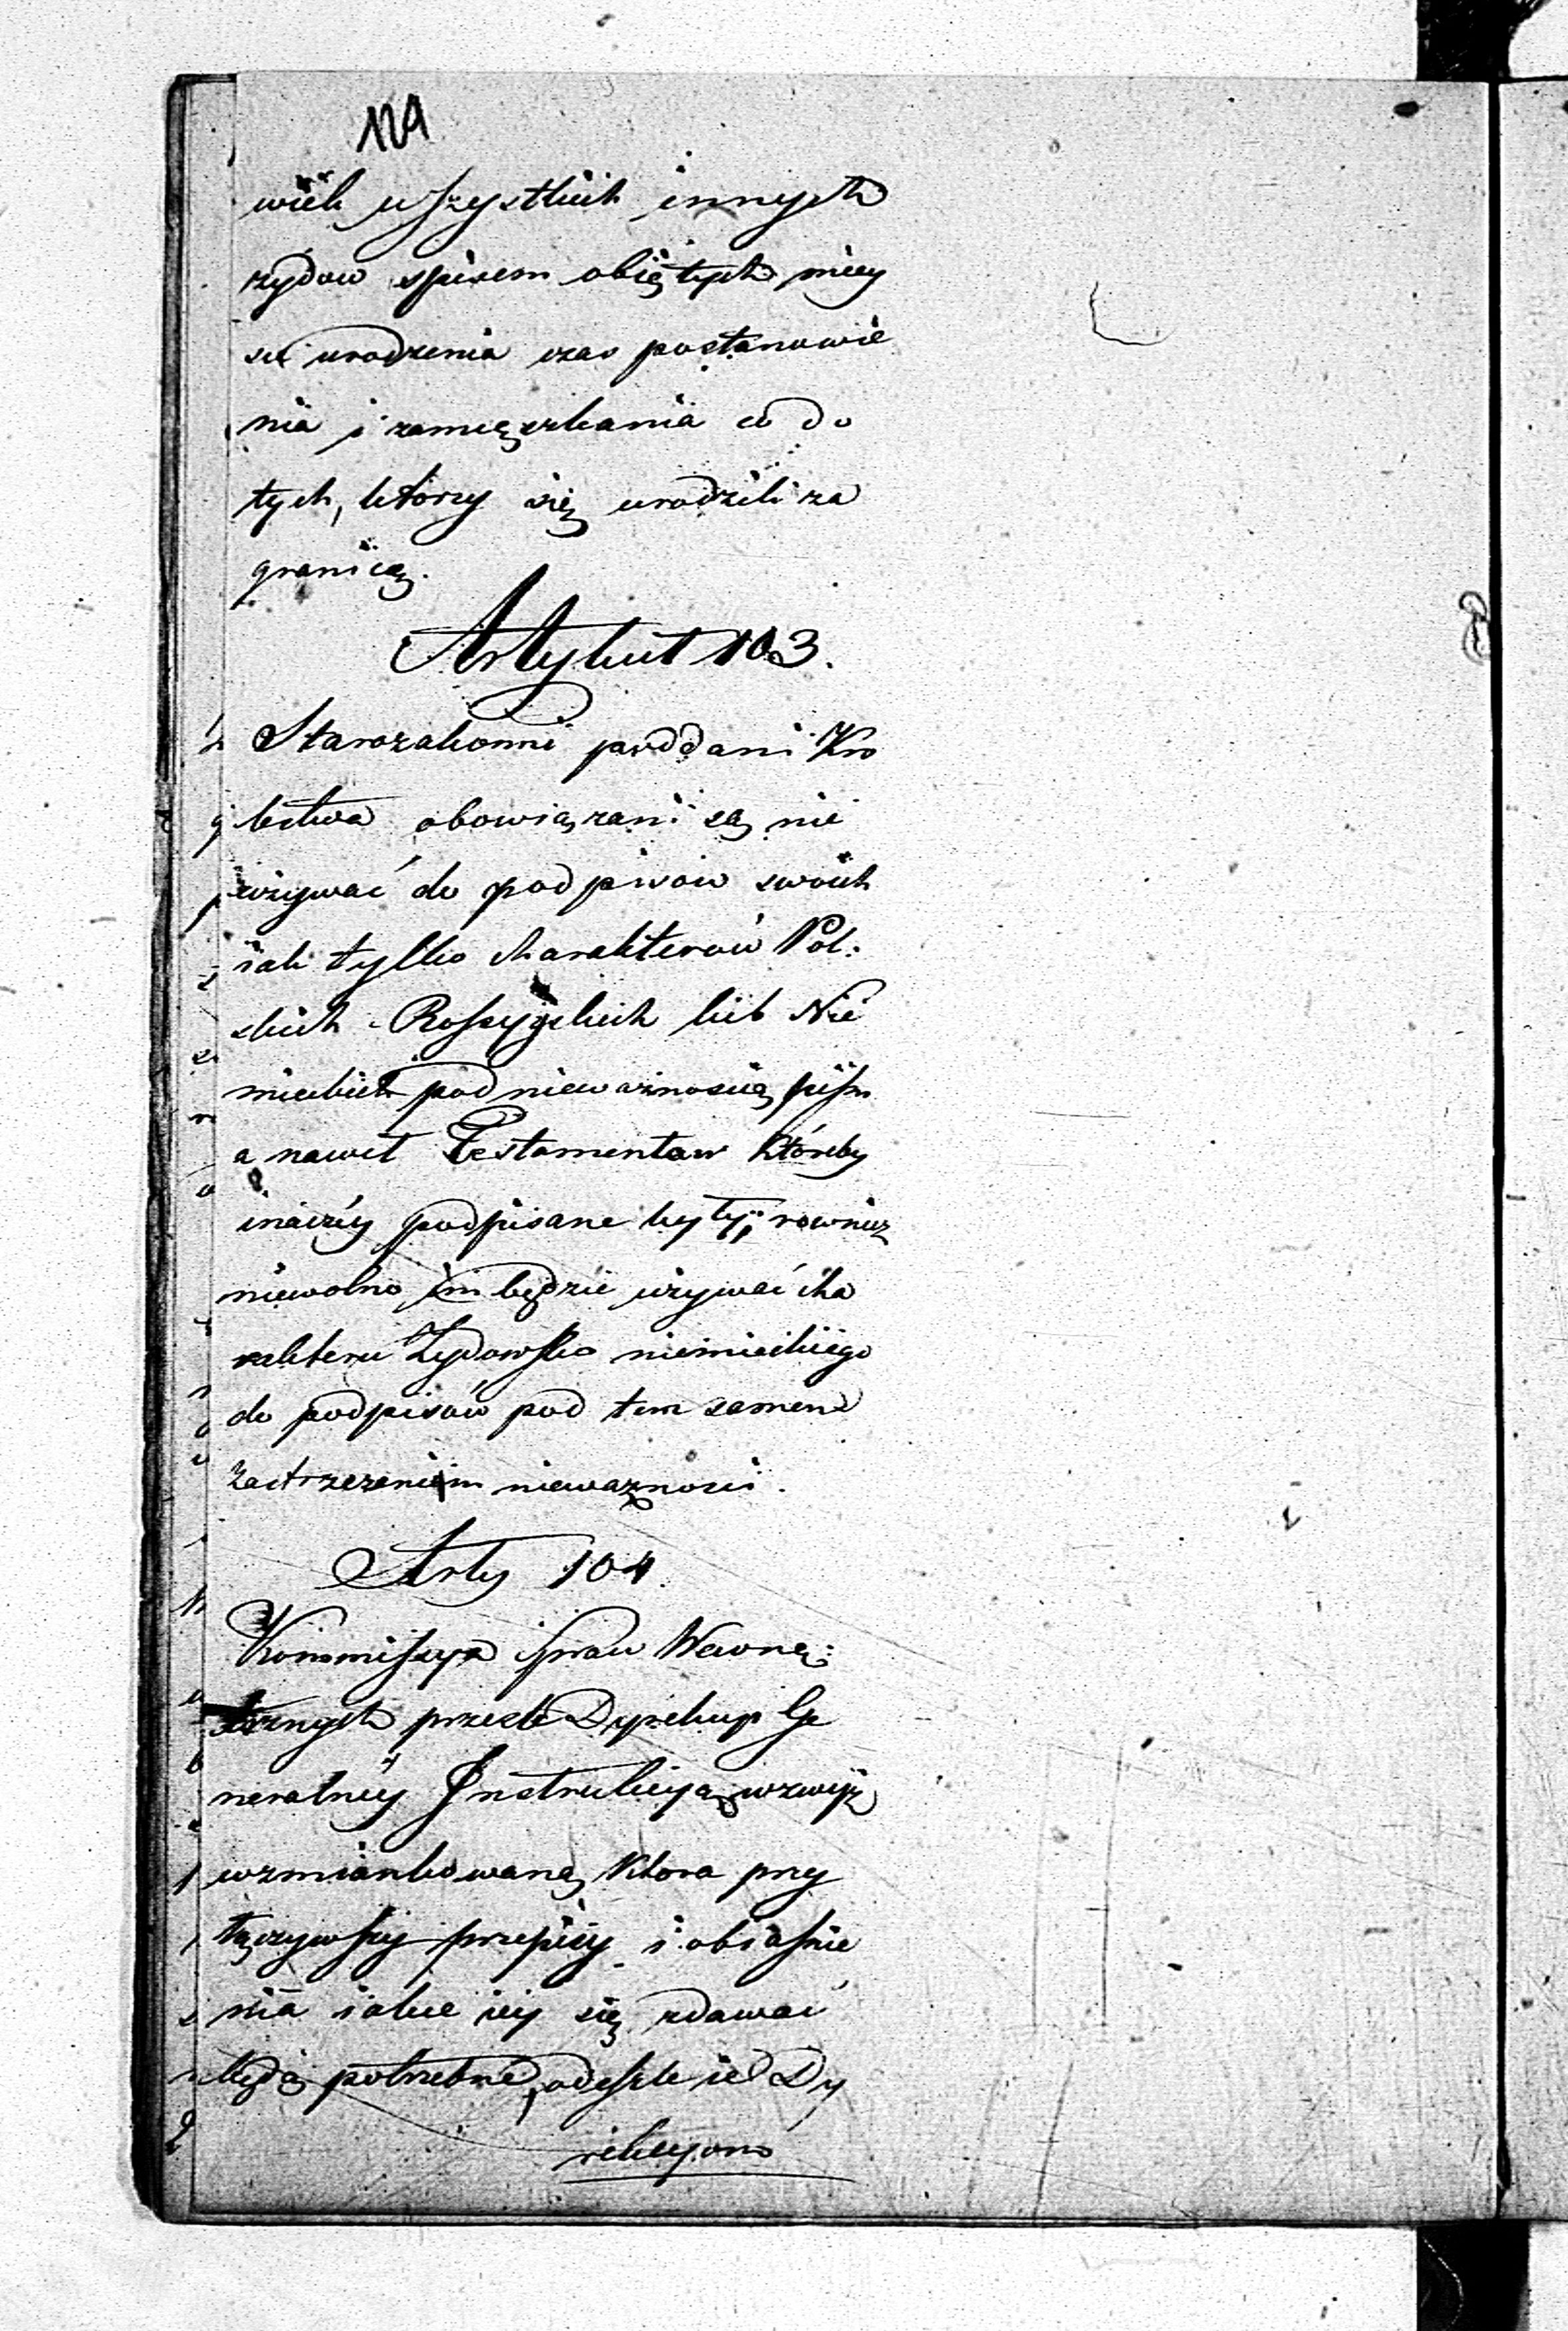 124
wiek wszystkich innych
rzydow spisem obiętych miey
sce urodzenia czas postanowie
nia i zamięszkania co do
tych, ktorzy się urodzili za
granicą.
Artykuł 103.
Starozakonni poddani Kro
lestwa obowiązani są nie
uzywać do podpisow swoich
iak tylko charakterow Pol:
skich Rossyiskich lub Nie
mieckich pod niewaznoscią pism
a nawet Testamentow któreby
inaczey podpisane były, rownież
niewolno im będzie uzywać cha
rakteru Zydowsko niemieckiego
do podpisów pod tem samem
zastrzezeniem niewaznosci.
Arty 104.
Kommissya spraw Wewnę:
trznych przesle Dyrekcyi Ge
neralney Instrukcyą wzwyż
wzmiankowaną ktora przy
łączywszy przepisy i obiasnie
nia iakie iey się zdawać
będą potrzebne, odeszle ie Dy
rekcyom